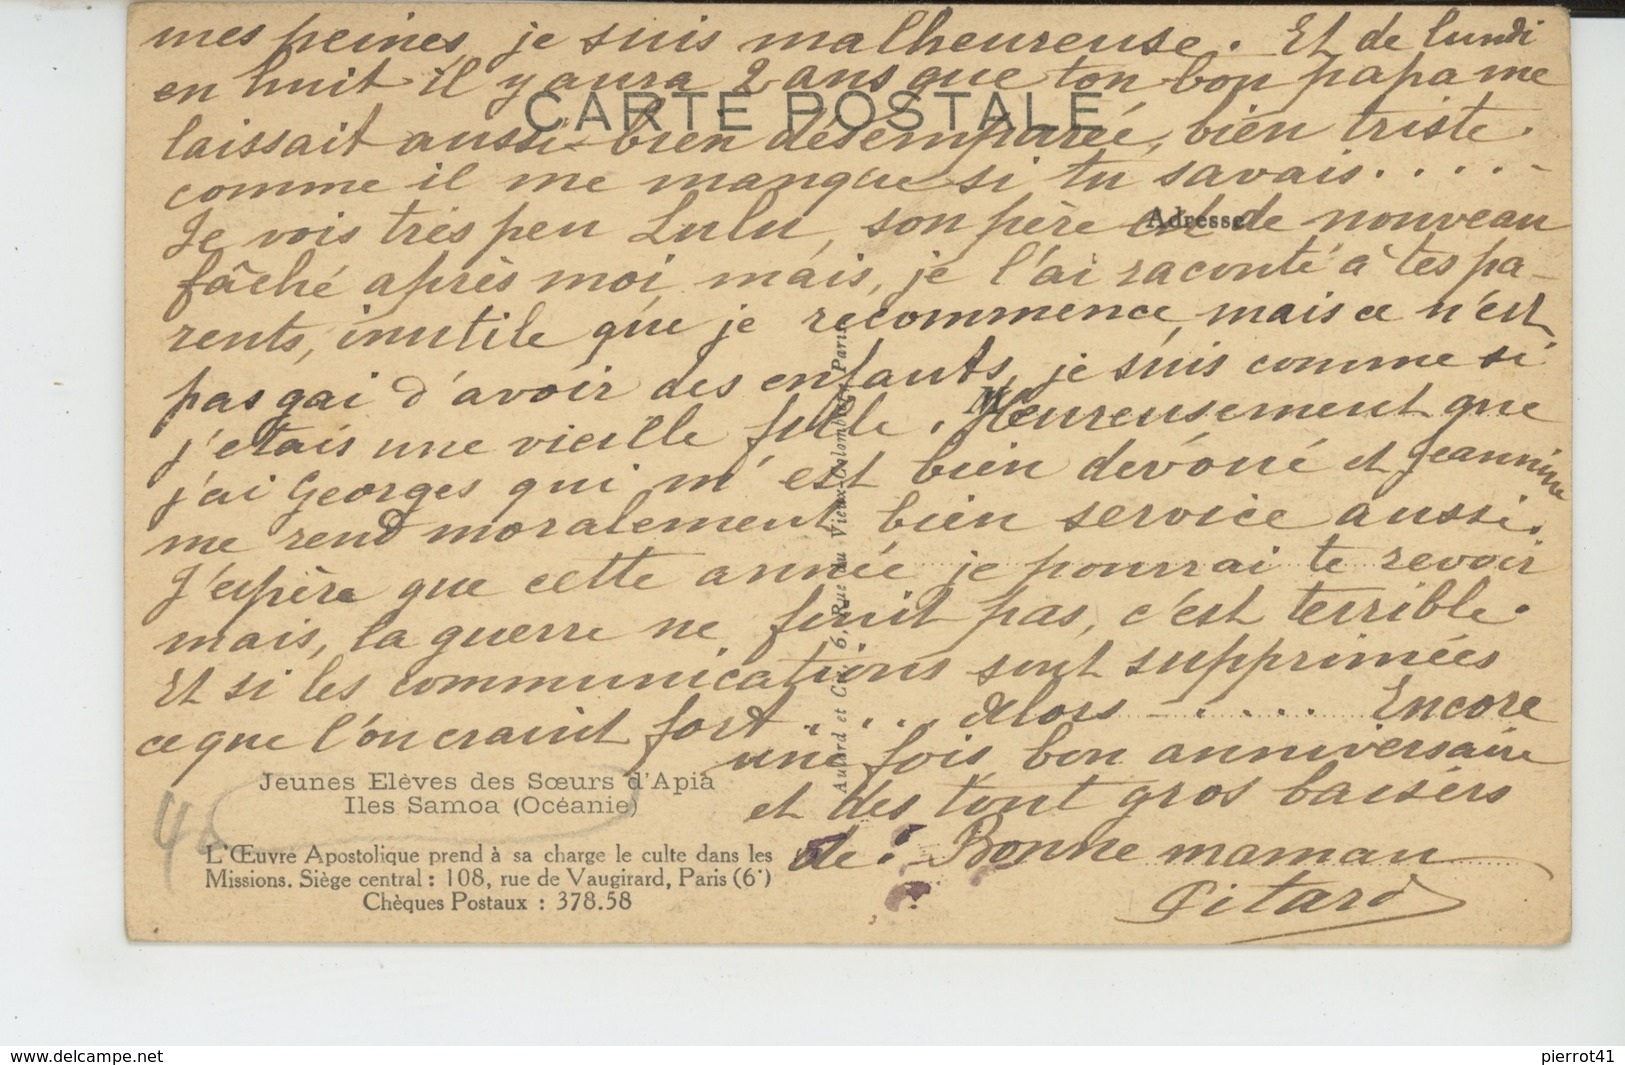 mes peines, je suis malheureuse. Et de lundi
en huit il y aura 2 ans que ton bon papa me
CARTE POSTALE
laissait aussi bien désemparée, bien triste.
comme il me manque si tu savais.....
Adresse
Je vois très peu Lulu, son père est de nouveau
fâché après moi, mais, je l'ai raconté à tes pa-
rents, inutile que je recommence, mais ce n'est
pas gai d'avoir des enfants, je suis comme si
M
j'étais une vieille fille. Heureusement que
j'ai Georges qui m'est bien dévoué et Jeannine
me rend moralement bien service aussi.
J'espère que cette année je pourrai te revoir
mais, la guerre ne finit pas, c'est terrible.
Et si les communications sont supprimées
ce que l'on craint fort.... Alors ..... Encore
une fois bon anniversaire
et des tout gros baisers
de : Bonne maman
Pitard
Autard et Cie, 6, Rue du Vieux-Colombier, Paris
Jeunes Elèves des Sœurs d'Apia
Iles Samoa (Océanie)
L'Œuvre Apostolique prend à sa charge le culte dans les
Missions. Siège central : 108, rue de Vaugirard, Paris (6°)
Chèques Postaux : 378.58
www.delcampe.net
pierrot41